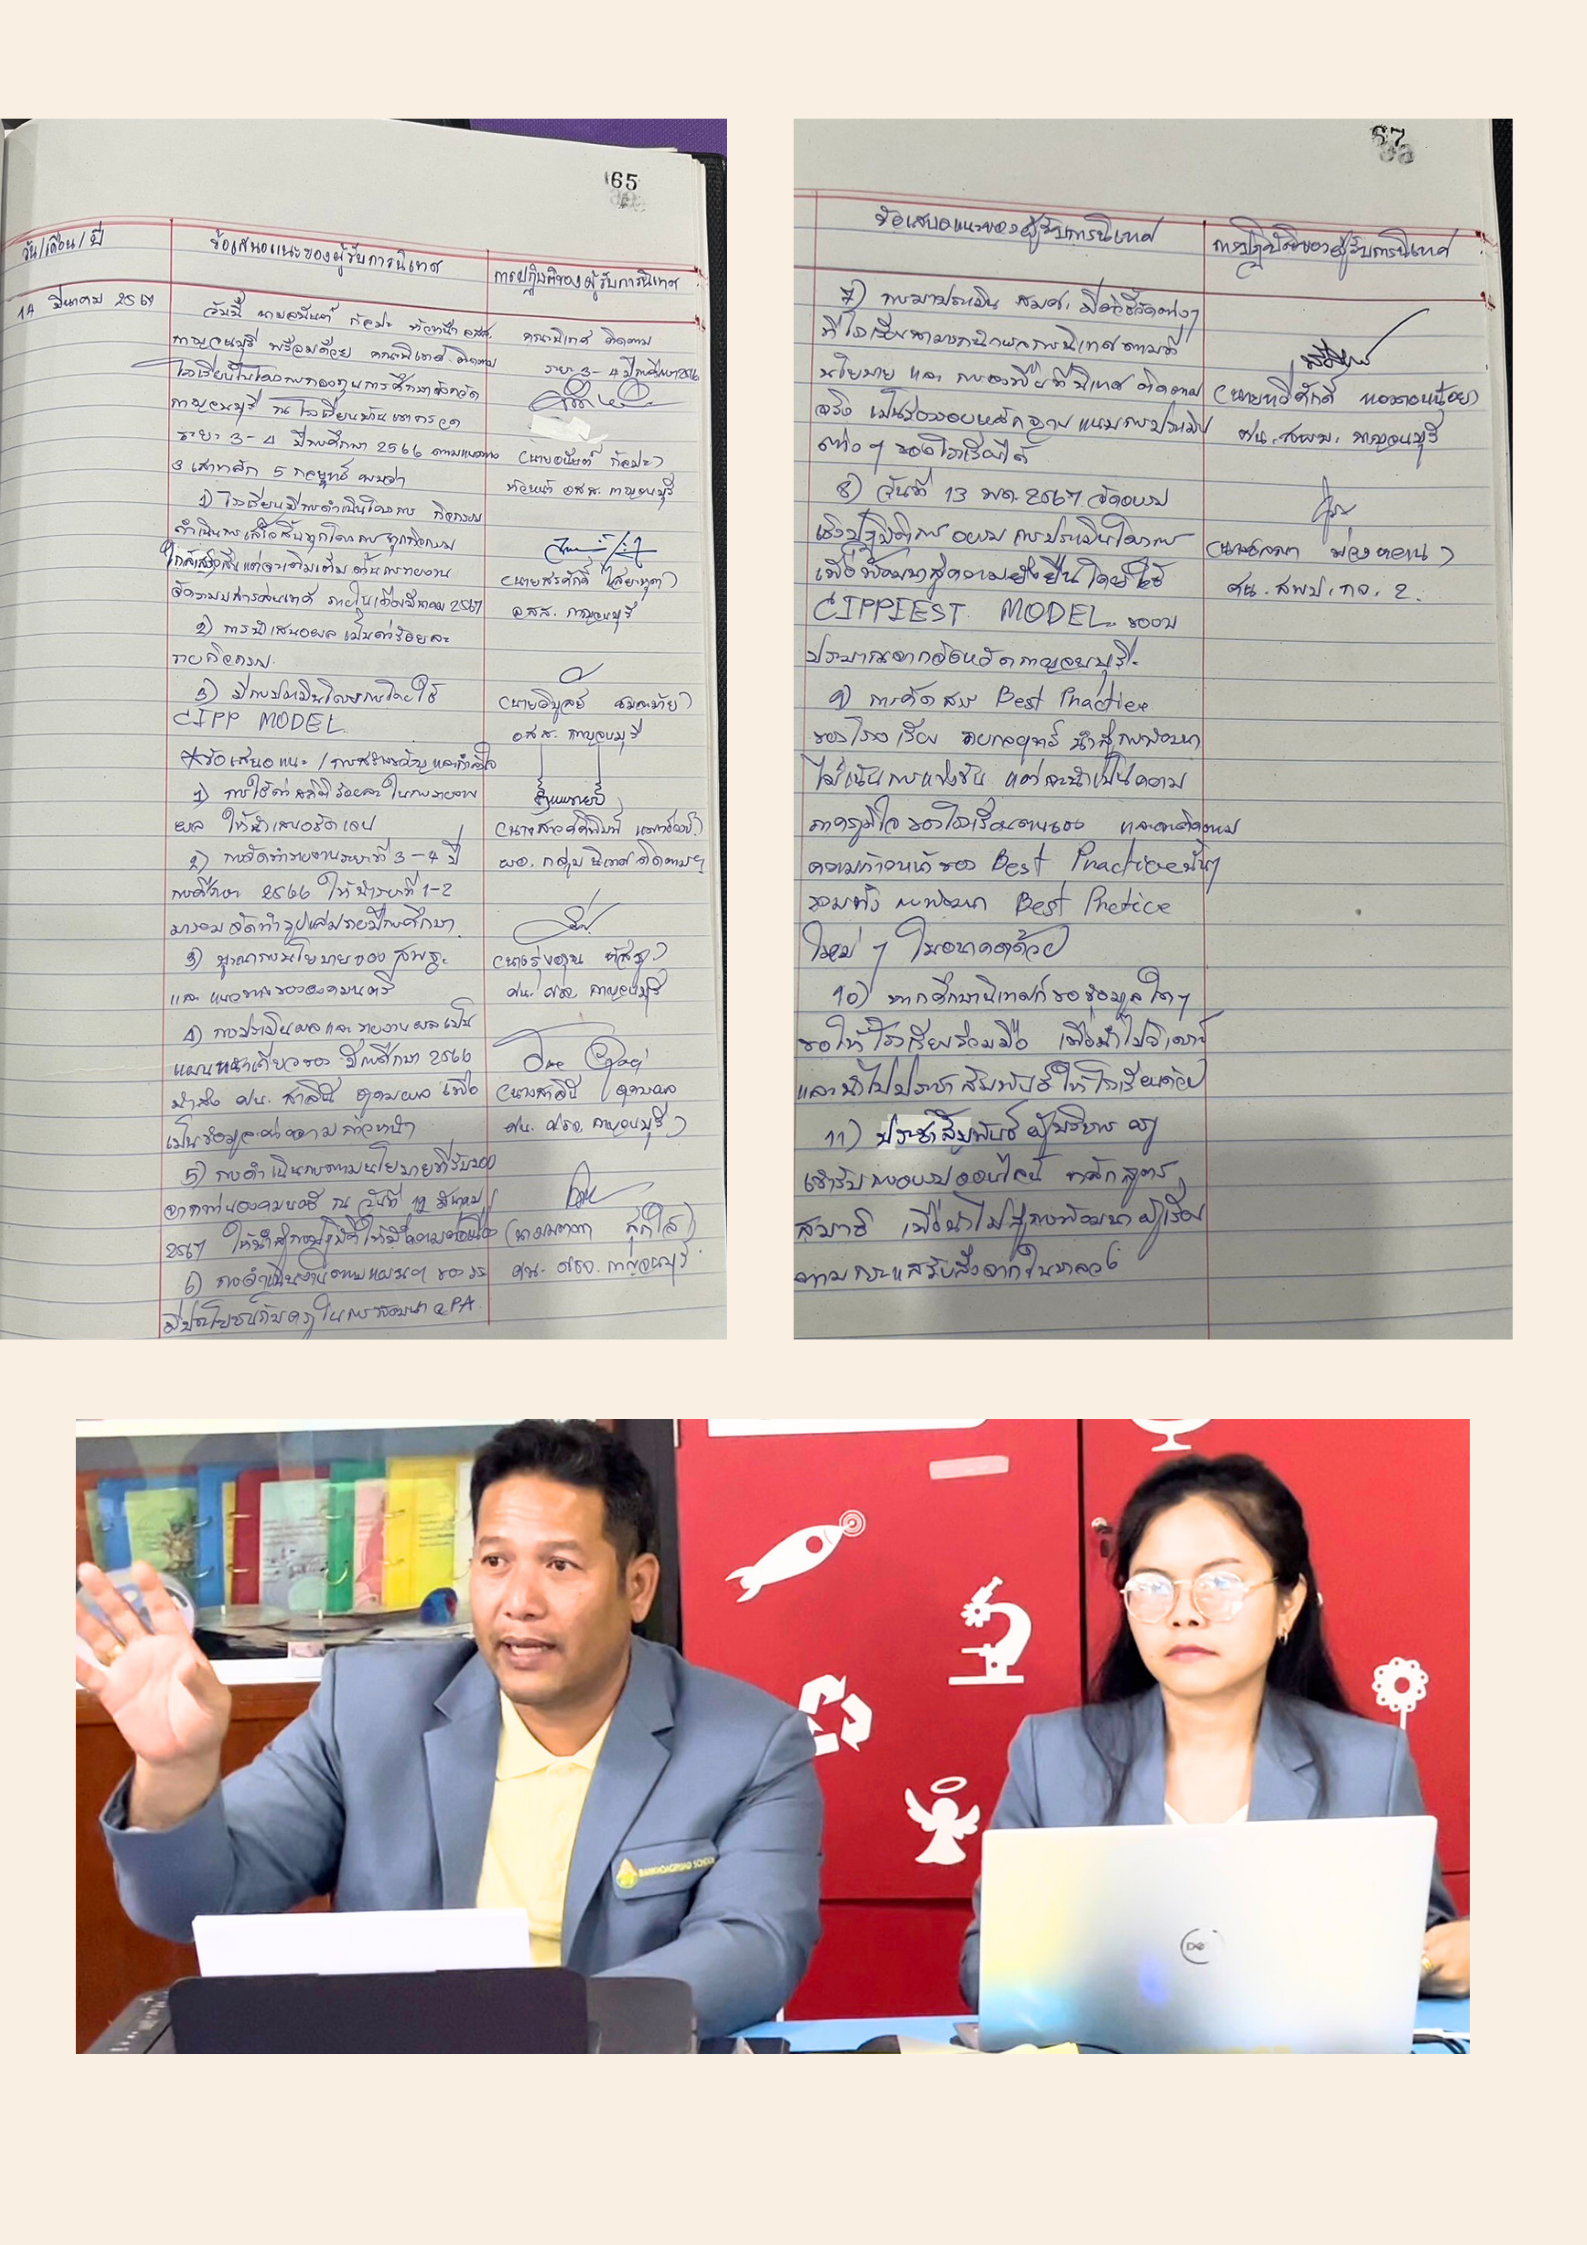 65
วัน/เดือน/ปี
ข้อเสนอแนะของผู้รับการนิเทศ
การปฏิบัติของผู้รับการนิเทศ
14 มีนาคม 2567
วันนี้ นายอนันต์ กัลปะ หัวหน้า อศจ.
กาญจนบุรี พร้อมด้วย คณะนิเทศ ติดตาม
โรงเรียนในโครงการกองทุนการศึกษาจังหวัด
กาญจนบุรี ณ โรงเรียนบ้านเขากรวด
ระยะ 3-4 ปีการศึกษา 2566 ตามแนวทาง
3 เสาหลัก 5 กลยุทธ์ พบว่า
1) โรงเรียนมีการดำเนินโครงการ กิจกรรม
ดำเนินการเสร็จสิ้นทุกโครงการ ทุกกิจกรรม
ใกล้เสร็จสิ้นแต่จะเติมเต็ม ด้านการรายงาน
ภายในเดือนมีนาคม 2567
2) การนำเสนอผล เป็นค่าร้อยละ
รายกิจกรรม
3) มีการประเมินโครงการโดยใช้
CIPP MODEL
*ข้อเสนอแนะ / การสร้างขวัญและกำลังใจ
1) การใช้ค่าสถิติร้อยละ ในการรายงาน
ผล ให้นำเสนอชัดเจน
2) การจัดทำรายงานระยะที่ 3-4 ปี
การศึกษา 2566 ให้นำระยะที่ 1-2
มารวม จัดทำรูปเล่มรายปีการศึกษา
3) บูรณาการนโยบายของ สพฐ.
และ แนวทางขององคมนตรี
4) การประเมินผลและรายงานผลเป็น
แผนหน้าเดียวของ ปีการศึกษา 2566
นำส่ง ศน. สาลินี อุดมผล เพื่อ
เป็นข้อมูล ความก้าวหน้า
5) การดำเนินการตามนโยบายที่รับมอบ
จากท่านองคมนตรี ณ วันที่ 12 มีนาคม
2567 ให้นำสู่การปฏิบัติให้มีความต่อเนื่อง
6) การดำเนินงานตามแผนฯ ของ รร
มีประโยชน์กับครูในการพัฒนา PA
คณะนิเทศ ติดตาม
ระยะ 3-4 ปีการศึกษา 2566
(นายอนันต์ กัลปะ)
หัวหน้า อศจ. กาญจนบุรี
(นายสรศักดิ์
กาญจนบุรี
(นายวิบูลย์
กาญจนบุรี
(นางสาวศศิพิมพ์
ผอ. กลุ่มนิเทศ ติดตามฯ
(นางรุ่งอรุณ
ศน. ศธจ. กาญจนบุรี
(นางสาลินี อุดมผล
ศน. ศธจ. กาญจนบุรี)
สุกใส)
ศน. ศธจ. กาญจนบุรี
67
ข้อเสนอแนะของผู้รับการนิเทศ
การปฏิบัติของผู้รับการนิเทศ
7) การมาประเมิน สมศ. มีตัวชี้วัดต่างๆ
ที่โรงเรียนสามารถนำผลการนิเทศตามที่
นโยบาย และ การลงพื้นที่นิเทศ ติดตาม
จริง เป็นร่องรอยหลักฐาน แนบการประเมิน
ต่าง ๆ ของโรงเรียนได้
8) วันที่ 13 พค. 2567 จัดอบรม
เชิงปฏิบัติการ อบรม การประเมินโครงการ
เพื่อพัฒนาสู่ความยั่งยืนโดยใช้
CIPPIEST MODEL ของบ
ประมาณจากจังหวัดกาญจนบุรี
9) การคัดสรร Best Practice
ของโรงเรียน รายกลยุทธ์ นำสู่การพัฒนา
ไม่เน้นการแข่งขัน แต่จะนำเป็นความ
ภาคภูมิใจ ของโรงเรียนตนเอง และติดตาม
ความก้าวหน้าของ Best Practice นั้นๆ
รวมทั้ง การพัฒนา Best Pretice
ใหม่ ๆ ในอนาคตด้วย
10) หากศึกษานิเทศก์ขอข้อมูลใดๆ
ขอให้โรงเรียนร่วมมือ เพื่อนำไปวิเคราะห์
และนำไปประชาสัมพันธ์ให้โรงเรียนด้วย
11) ประชาสัมพันธ์ ผู้บริหาร ครู
เข้ารับการอบรมออนไลน์ หลักสูตร
สมาธิ เพื่อนำไปสู่การพัฒนา ผู้เรียน
ตามกระแสรับสั่งจากในหลวง
(นายทวีศักดิ์ ทองดอนน้อย)
ศน. สพม. กาญจนบุรี
ศน. สพป. กจ. 2.
BANKHAOKRUAD SCHOOL
DELL